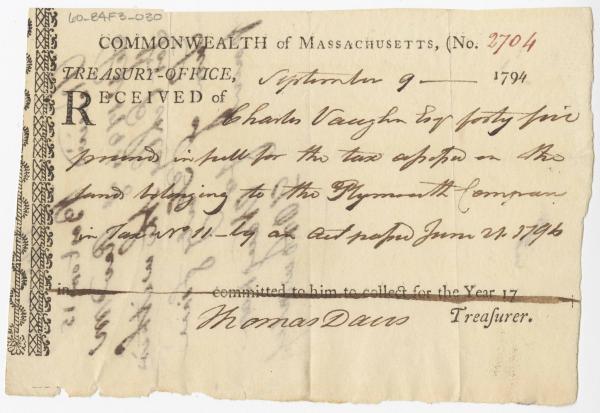 60-24F3-030
COMMONWEALTH of MASSACHUSETTS, (No. 2704
TREASURY-OFFICE, September 9 — 1794
RECEIVED of
Charles Vaughn Esq forty five
pound in full for the tax assessed on the
lands belonging to the Plymouth Company
in Tax No 11 — by an act passed June 21. 1794
in committed to him to collect for the Year 17
Thomas Davis Treasurer.